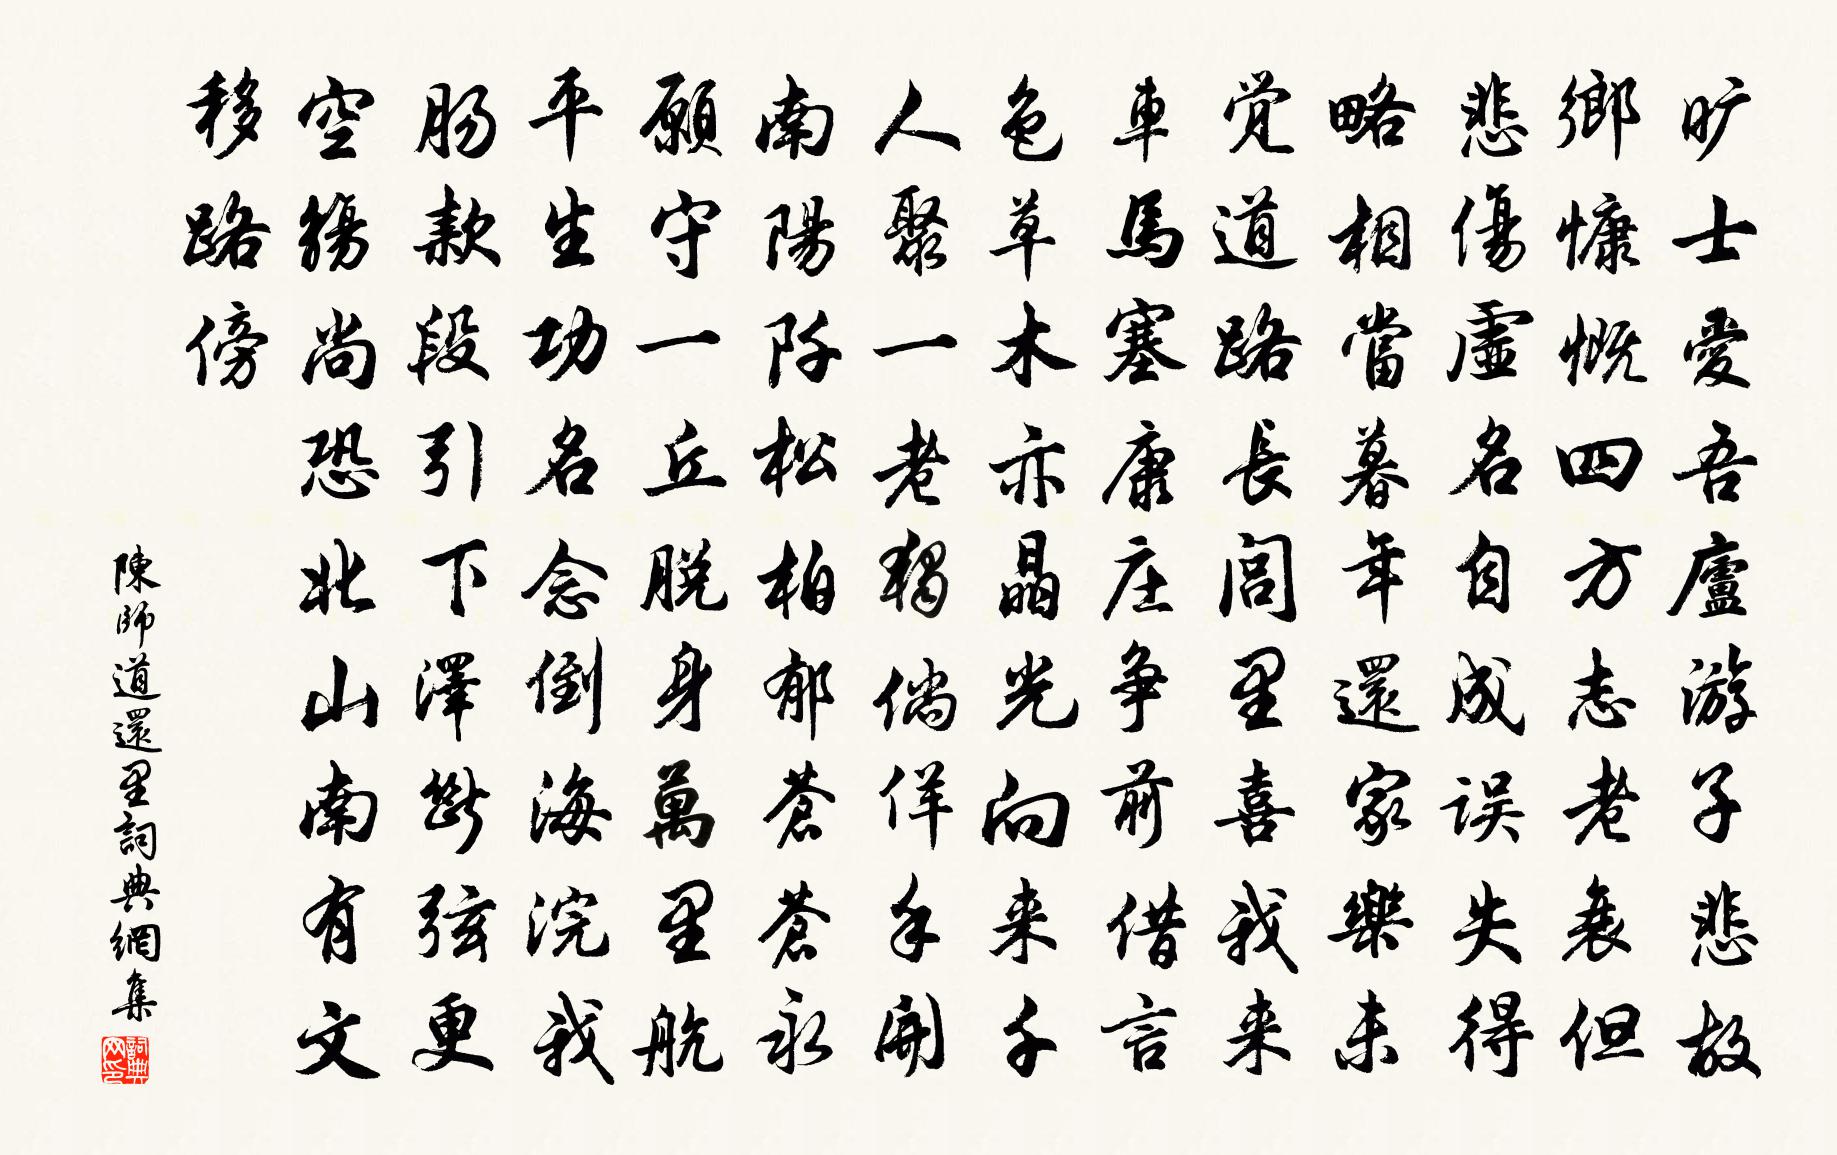 旷士愛吾廬游子悲故
鄉慷慨四方志老衰但
悲傷虛名自成误失得
略相當暮年還家樂未
觉道路長闾里喜我来
車馬塞康庄争前借言
色草木亦晶光向来千
人聚一老獨倘佯手開
南陽阡松柏郁蒼蒼永
願守一丘脱身萬里航
平生功名念倒海浣我
肠款段引下澤斷弦更
空觴尚恐北山南有文
移路傍
陳師道還里詞典網集
詞典网印